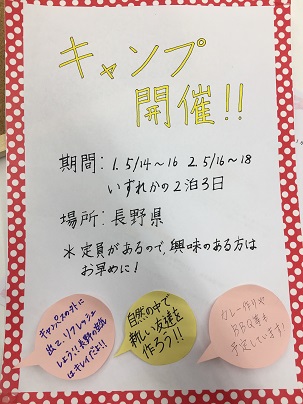 キャンプ
開催!!
期間: 1. 5/14~16 2. 5/16~18
いずれかの2泊3日
場所: 長野県
*定員があるので、興味のある方は
お早めに!
キャンプで外に
出て、リフレッシュ
しよう!!長野の
はキレイだよ!!
自然の中で
新しい友達を
作ろう!!
カレー作りや
BBQ等も
予定しています!